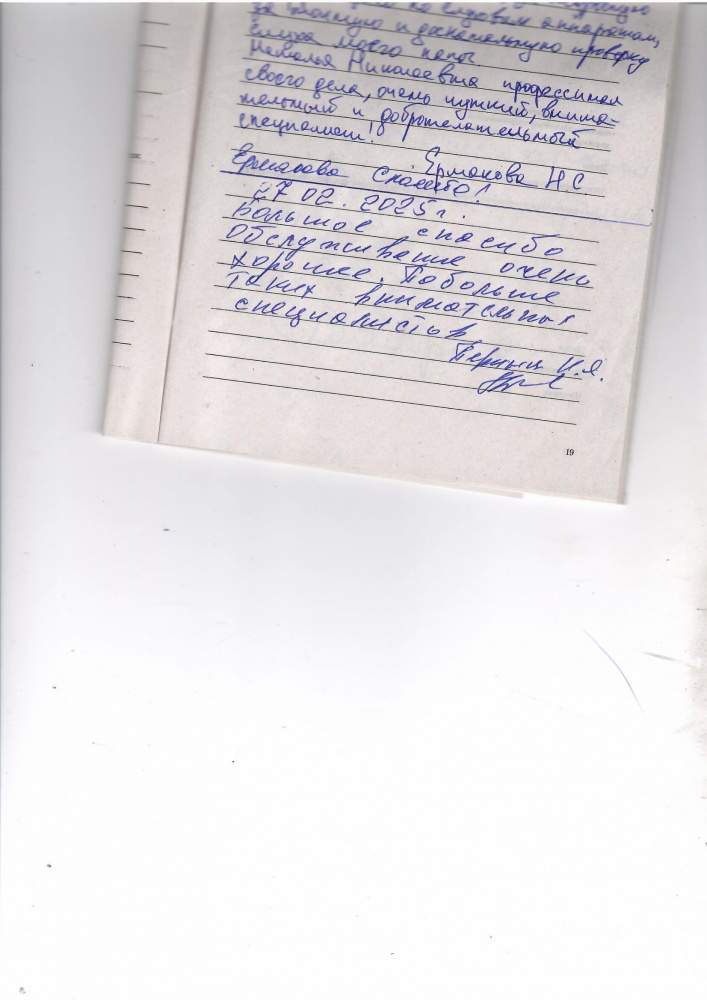 по слуховым аппаратам,
и досканальную проверку
слуха моего папы.
Наталья Николаевна профессионал
своего дела, очень чуткий, внима-
тельный и доброжелательный
специалист!
Ермакова Н С.
Ермакова Спасибо!
27 02. 2025 г.
Большое спасибо
Обслуживание очень
хорошее. Побольше
таких внимательных
специалистов
И. Я.
19